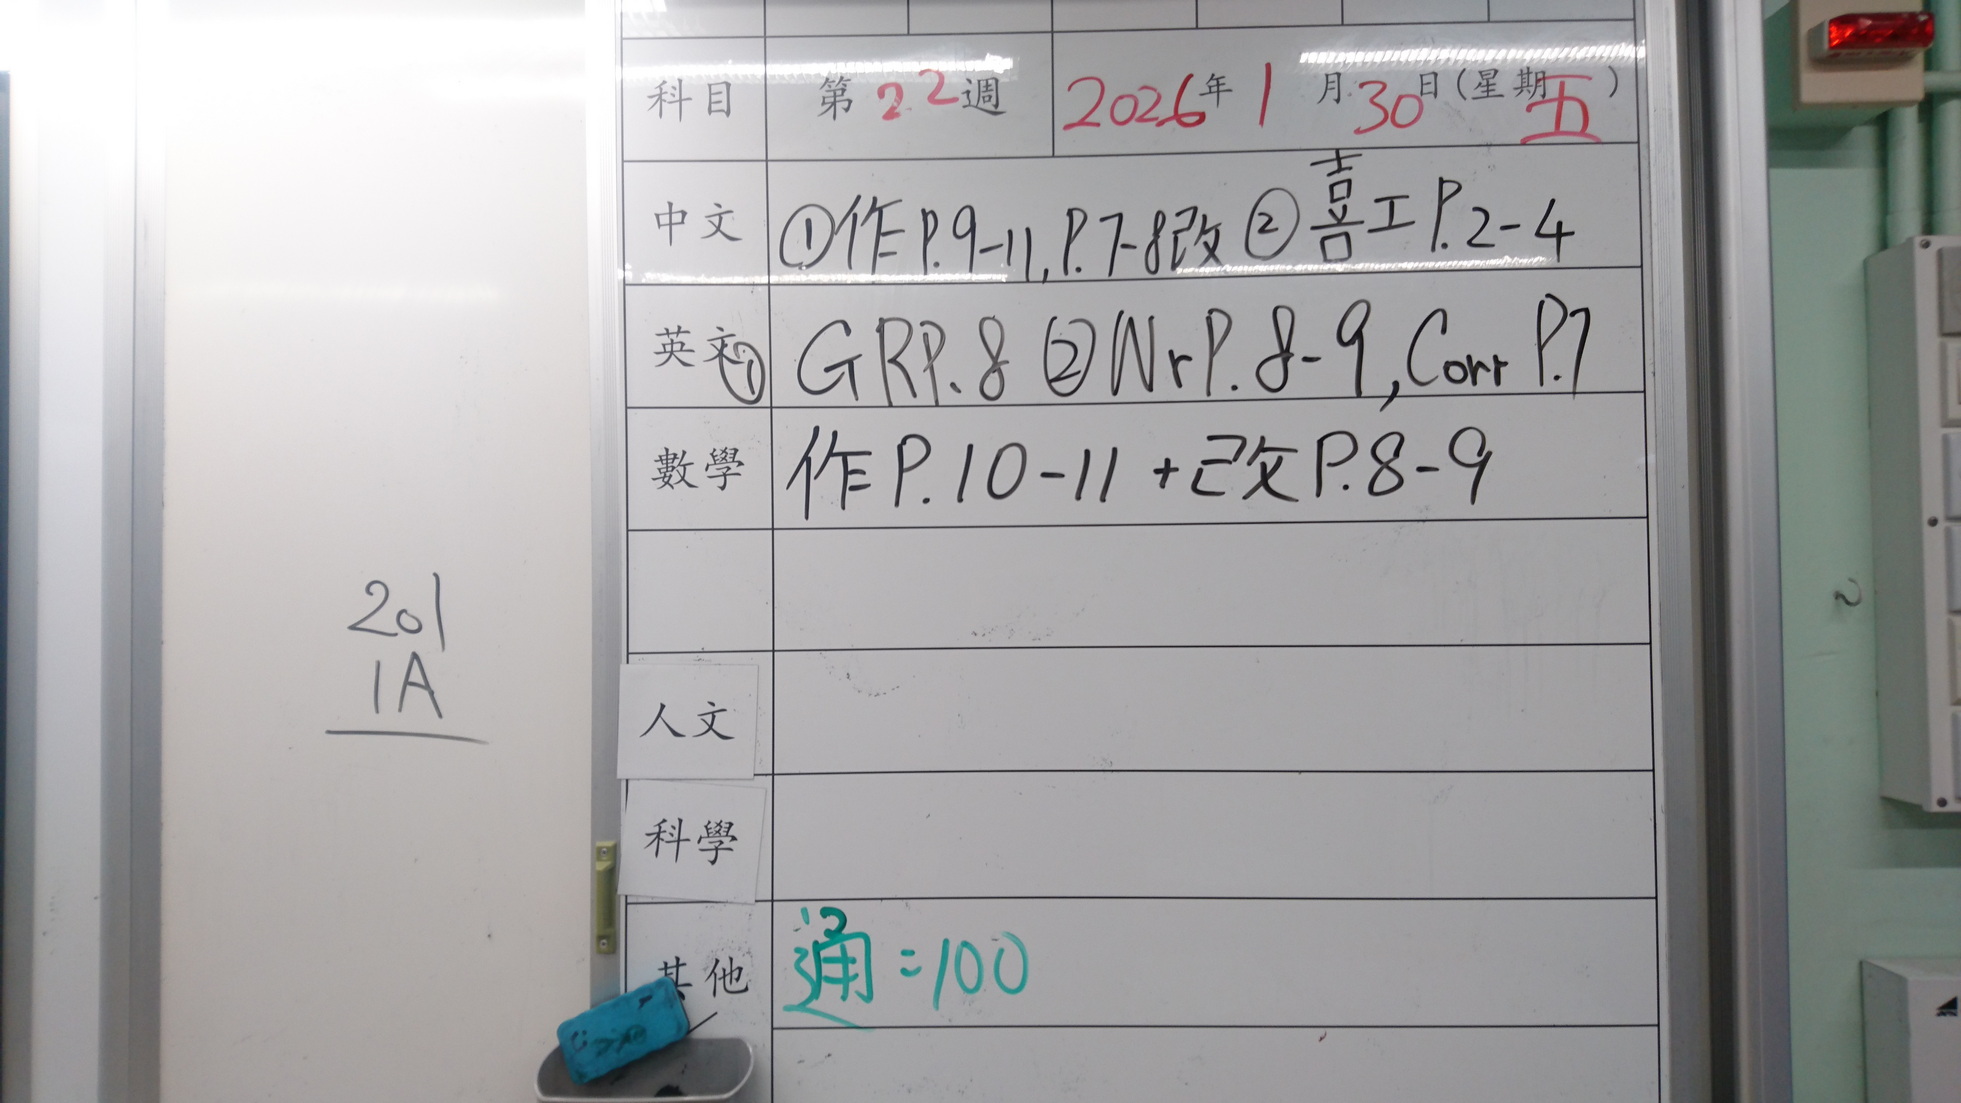 科目 第22週 2026年1月30日(星期五)
中文 ①作P.9-11,P.7-8改 ②喜工P.2-4
英文 ①GRP.8 ②WrP.8-9,Corr P.7
數學 作P.10-11+改P.8-9
201
1A
人文
科學
其他 通=100